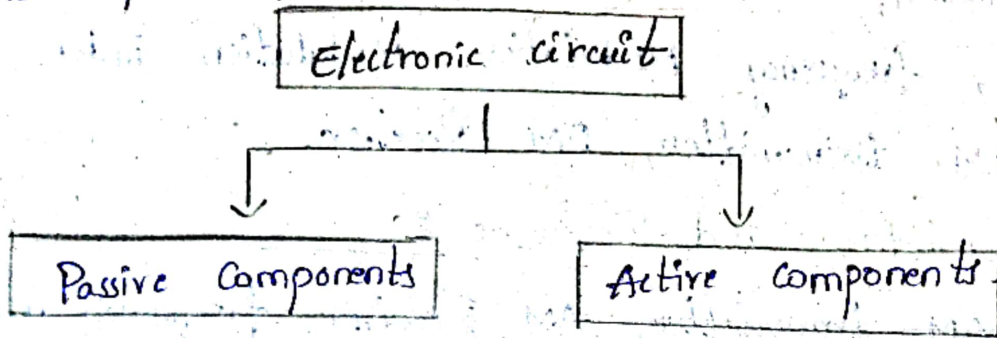 Electronic circuit
Passive Components
Active components